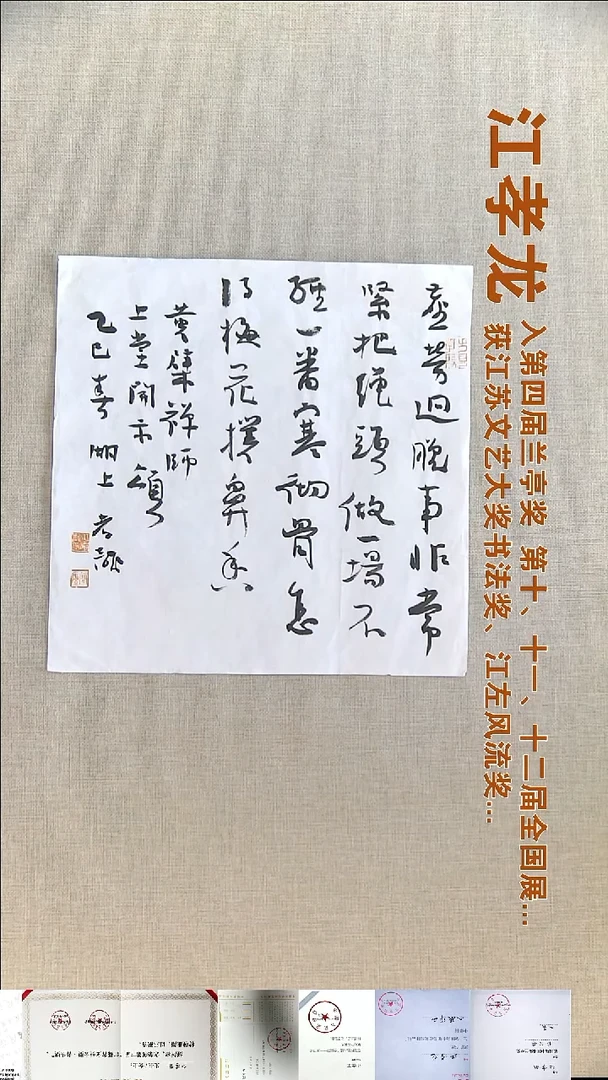 江孝龙
入第四届兰亭奖 第十、十一、十二届全国展...
获江苏文艺大奖书法奖、江左风流奖...
塵勞迥脫事非常
緊把繩頭做一場不
經一番寒徹骨怎
得梅花撲鼻香
黄檗禅師
上堂開示頌
乙巳春湖上孝龍